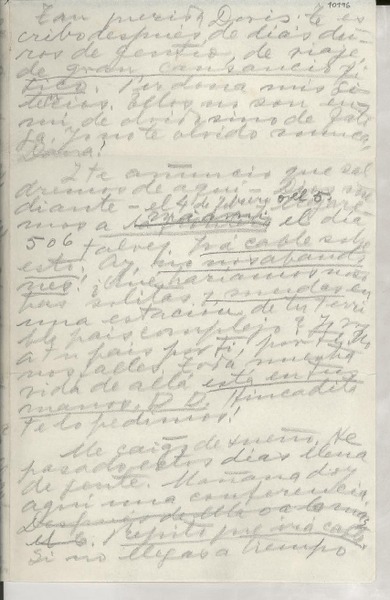 10996
Tan querida Doris: Te es
cribo despues de dias du
ros de gentío, de viaje
de gran cansancio fí
sico. Perdona mis si
lencios. Ellos no son en
mi de olvido sino de fati
ga. Yo no te olvido nunca,
nunca!
I te anuncio que sal
dremos de aquí - Dios me
diante - el 4 de febrero o el 5.
mos a Miami el día
5 o 6 talvez. Va cable sobre
esto. Ay, no nos abando
nes! ¡Qué haríamos nos
otras solitas, y mudas en
una estacion de tu terri
ble pais complejo? Yo voy
a tu pais por ti, por ti. Y
nos alles, toda nuestra
vida de allá está en tus
manos, D. D. Hincadita
te lo pedimos!
Me caigo de sueño. He
pasado estos dias llena
de gente. Mañana doy
aquí una conferencia.
Despues de ella o a lo más
el 6. Repito que irá cable
Si no llegas a tiempo